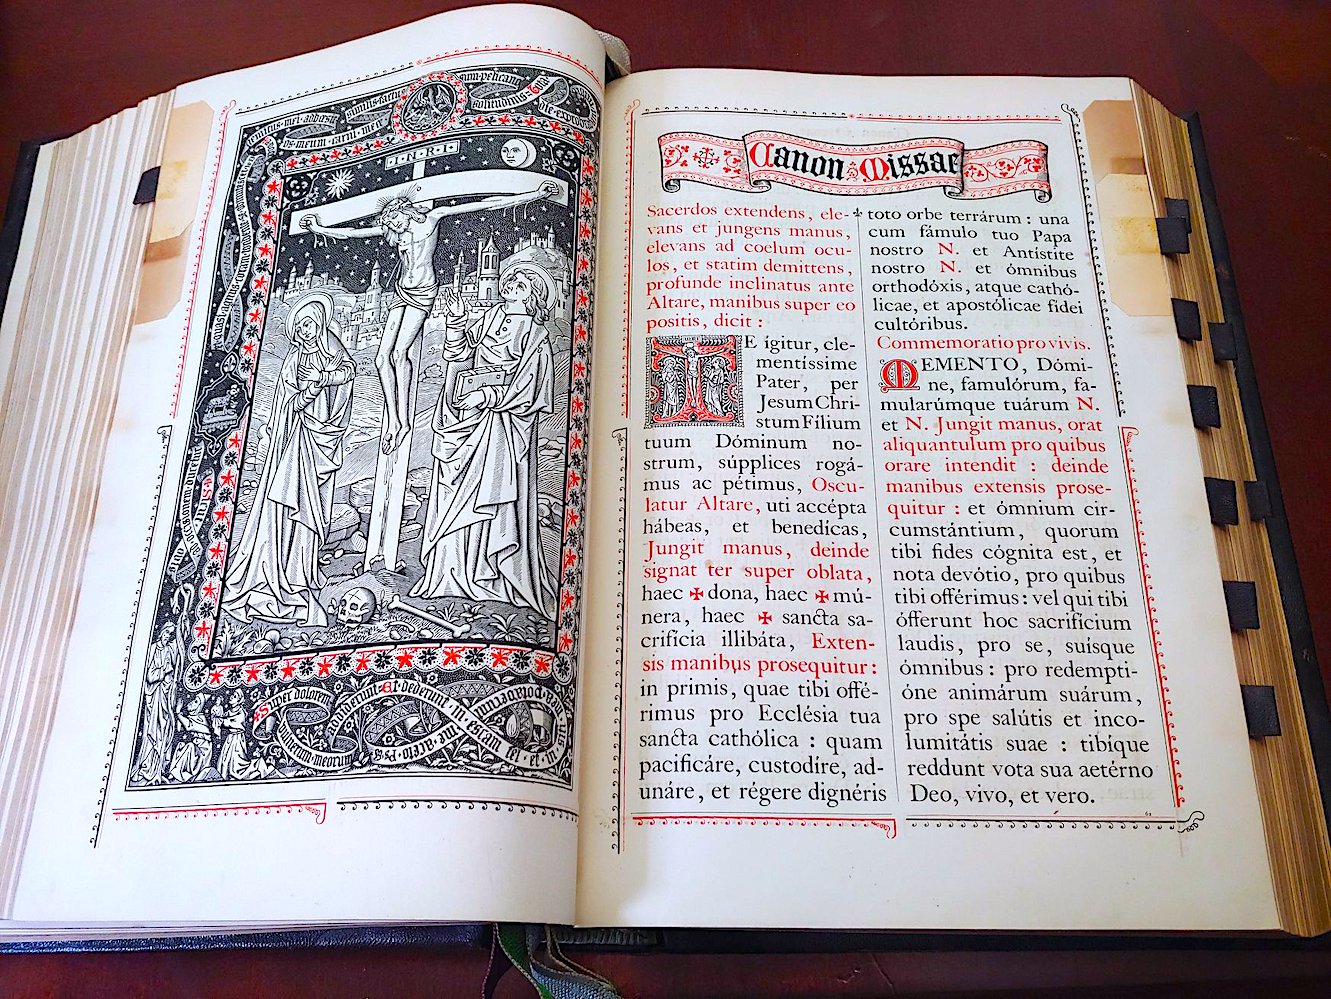 I·N·R·I
similis factus
sum pelicano
solitudinis
os meum carni meę
Super dolorem
vulnerum meorum
addiderunt
Et dederunt in escam
fel et in siti
mea potaverunt
me aceto
Canon Missae
Sacerdos extendens, ele-
vans et jungens manus,
elevans ad coelum ocu-
los, et statim demittens,
profunde inclinatus ante
Altare, manibus super eo
positis, dicit :
TE ígitur, cle-
mentíssime
Pater, per
Jesum Chri-
stum Fílium
tuum Dóminum no-
strum, súpplices rogá-
mus ac pétimus, Oscu-
latur Altare, uti accépta
hábeas, et benedícas,
Jungit manus, deinde
signat ter super oblata,
haec ✠ dona, haec ✠ mú-
nera, haec ✠ sancta sa-
crifícia illibáta, Exten-
sis manibus prosequitur :
in primis, quae tibi offé-
rimus pro Ecclésia tua
sancta cathólica : quam
pacificáre, custodíre, ad-
unáre, et régere dignéris
toto orbe terrárum : una
cum fámulo tuo Papa
nostro N. et Antístite
nostro N. et ómnibus
orthodóxis, atque cathó-
licae, et apostólicae fídei
cultóribus.
Commemoratio pro vivis.
MEMENTO, Dómi-
ne, famulórum, fa-
mularúmque tuárum N.
et N. Jungit manus, orat
aliquantulum pro quibus
orare intendit : deinde
manibus extensis prose-
quitur : et ómnium cir-
cumstántium, quorum
tibi fides cógnita est, et
nota devótio, pro quibus
tibi offérimus : vel qui tibi
ófferunt hoc sacrifícium
laudis, pro se, suísque
ómnibus : pro redempti-
óne animárum suárum,
pro spe salútis et inco-
lumitátis suae : tibíque
reddunt vota sua aetérno
Deo, vivo, et vero.